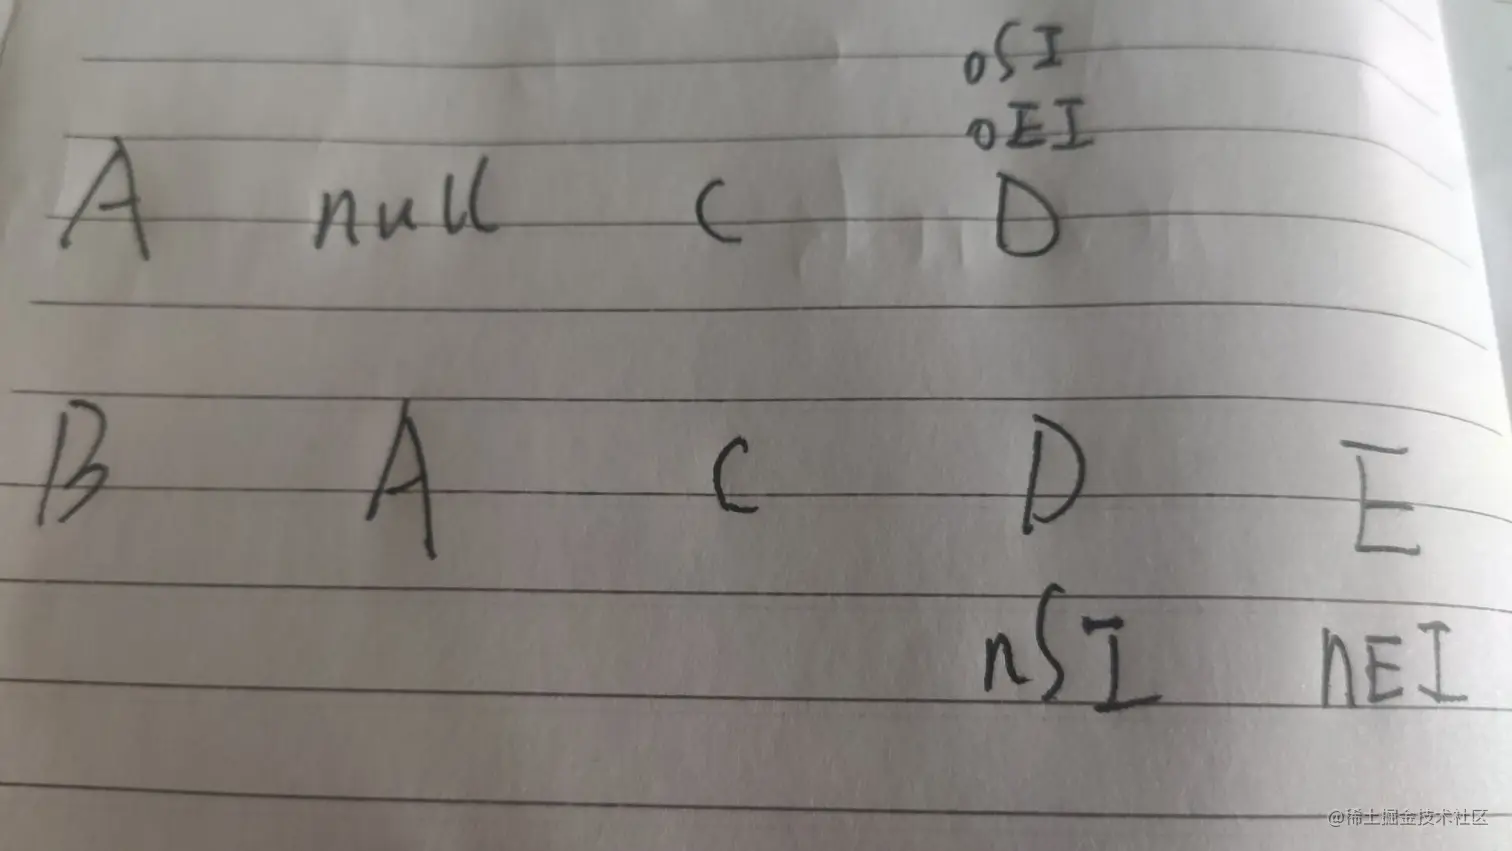 oSI
oEI
A null C D
B A C D E
nSI nEI
@稀土掘金技术社区